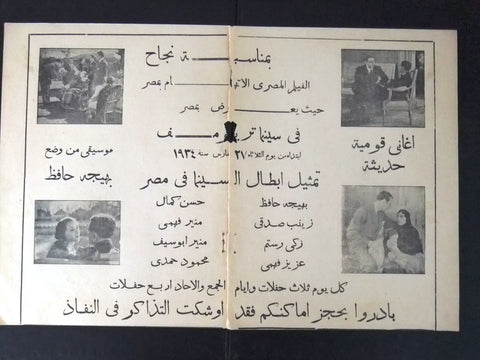 بمناسبـــة نجاح
الفيلم المصرى الاتهام بمصر
حيث يعرض بمصر
فى سينما تريومف
ابتداء من يوم الثلاثاء ٢٧ مارس سنة ١٩٣٤
اغانى قومية
حديثة
موسيقى من وضع
بهيجه حافظ
تمثيل ابطال السينما فى مصر
بهيجه حافظ
حسن كمال
زينب صدقى
منير فهمى
زكى رستم
منير ابوسيف
عزيز فهمى
محمود حمدى
كل يوم ثلاث حفلات وايام الجمع والاحاد اربع حفلات
بادروا بحجز اماكنكم فقد اوشكت التذاكر فى النفاذ